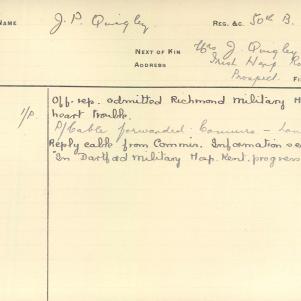 NAME J. P. Quigley REG. &C. 50th B.
NEXT OF KIN Mrs J. Quigley
ADDRESS Irish Hosp.
Prospect.
1/P Off. rep. admitted Richmond Military H
heart trouble.
P/Cable forwarded.
Reply cable from Commrs. Information se
"In Dartford Military Hosp. Kent. progress